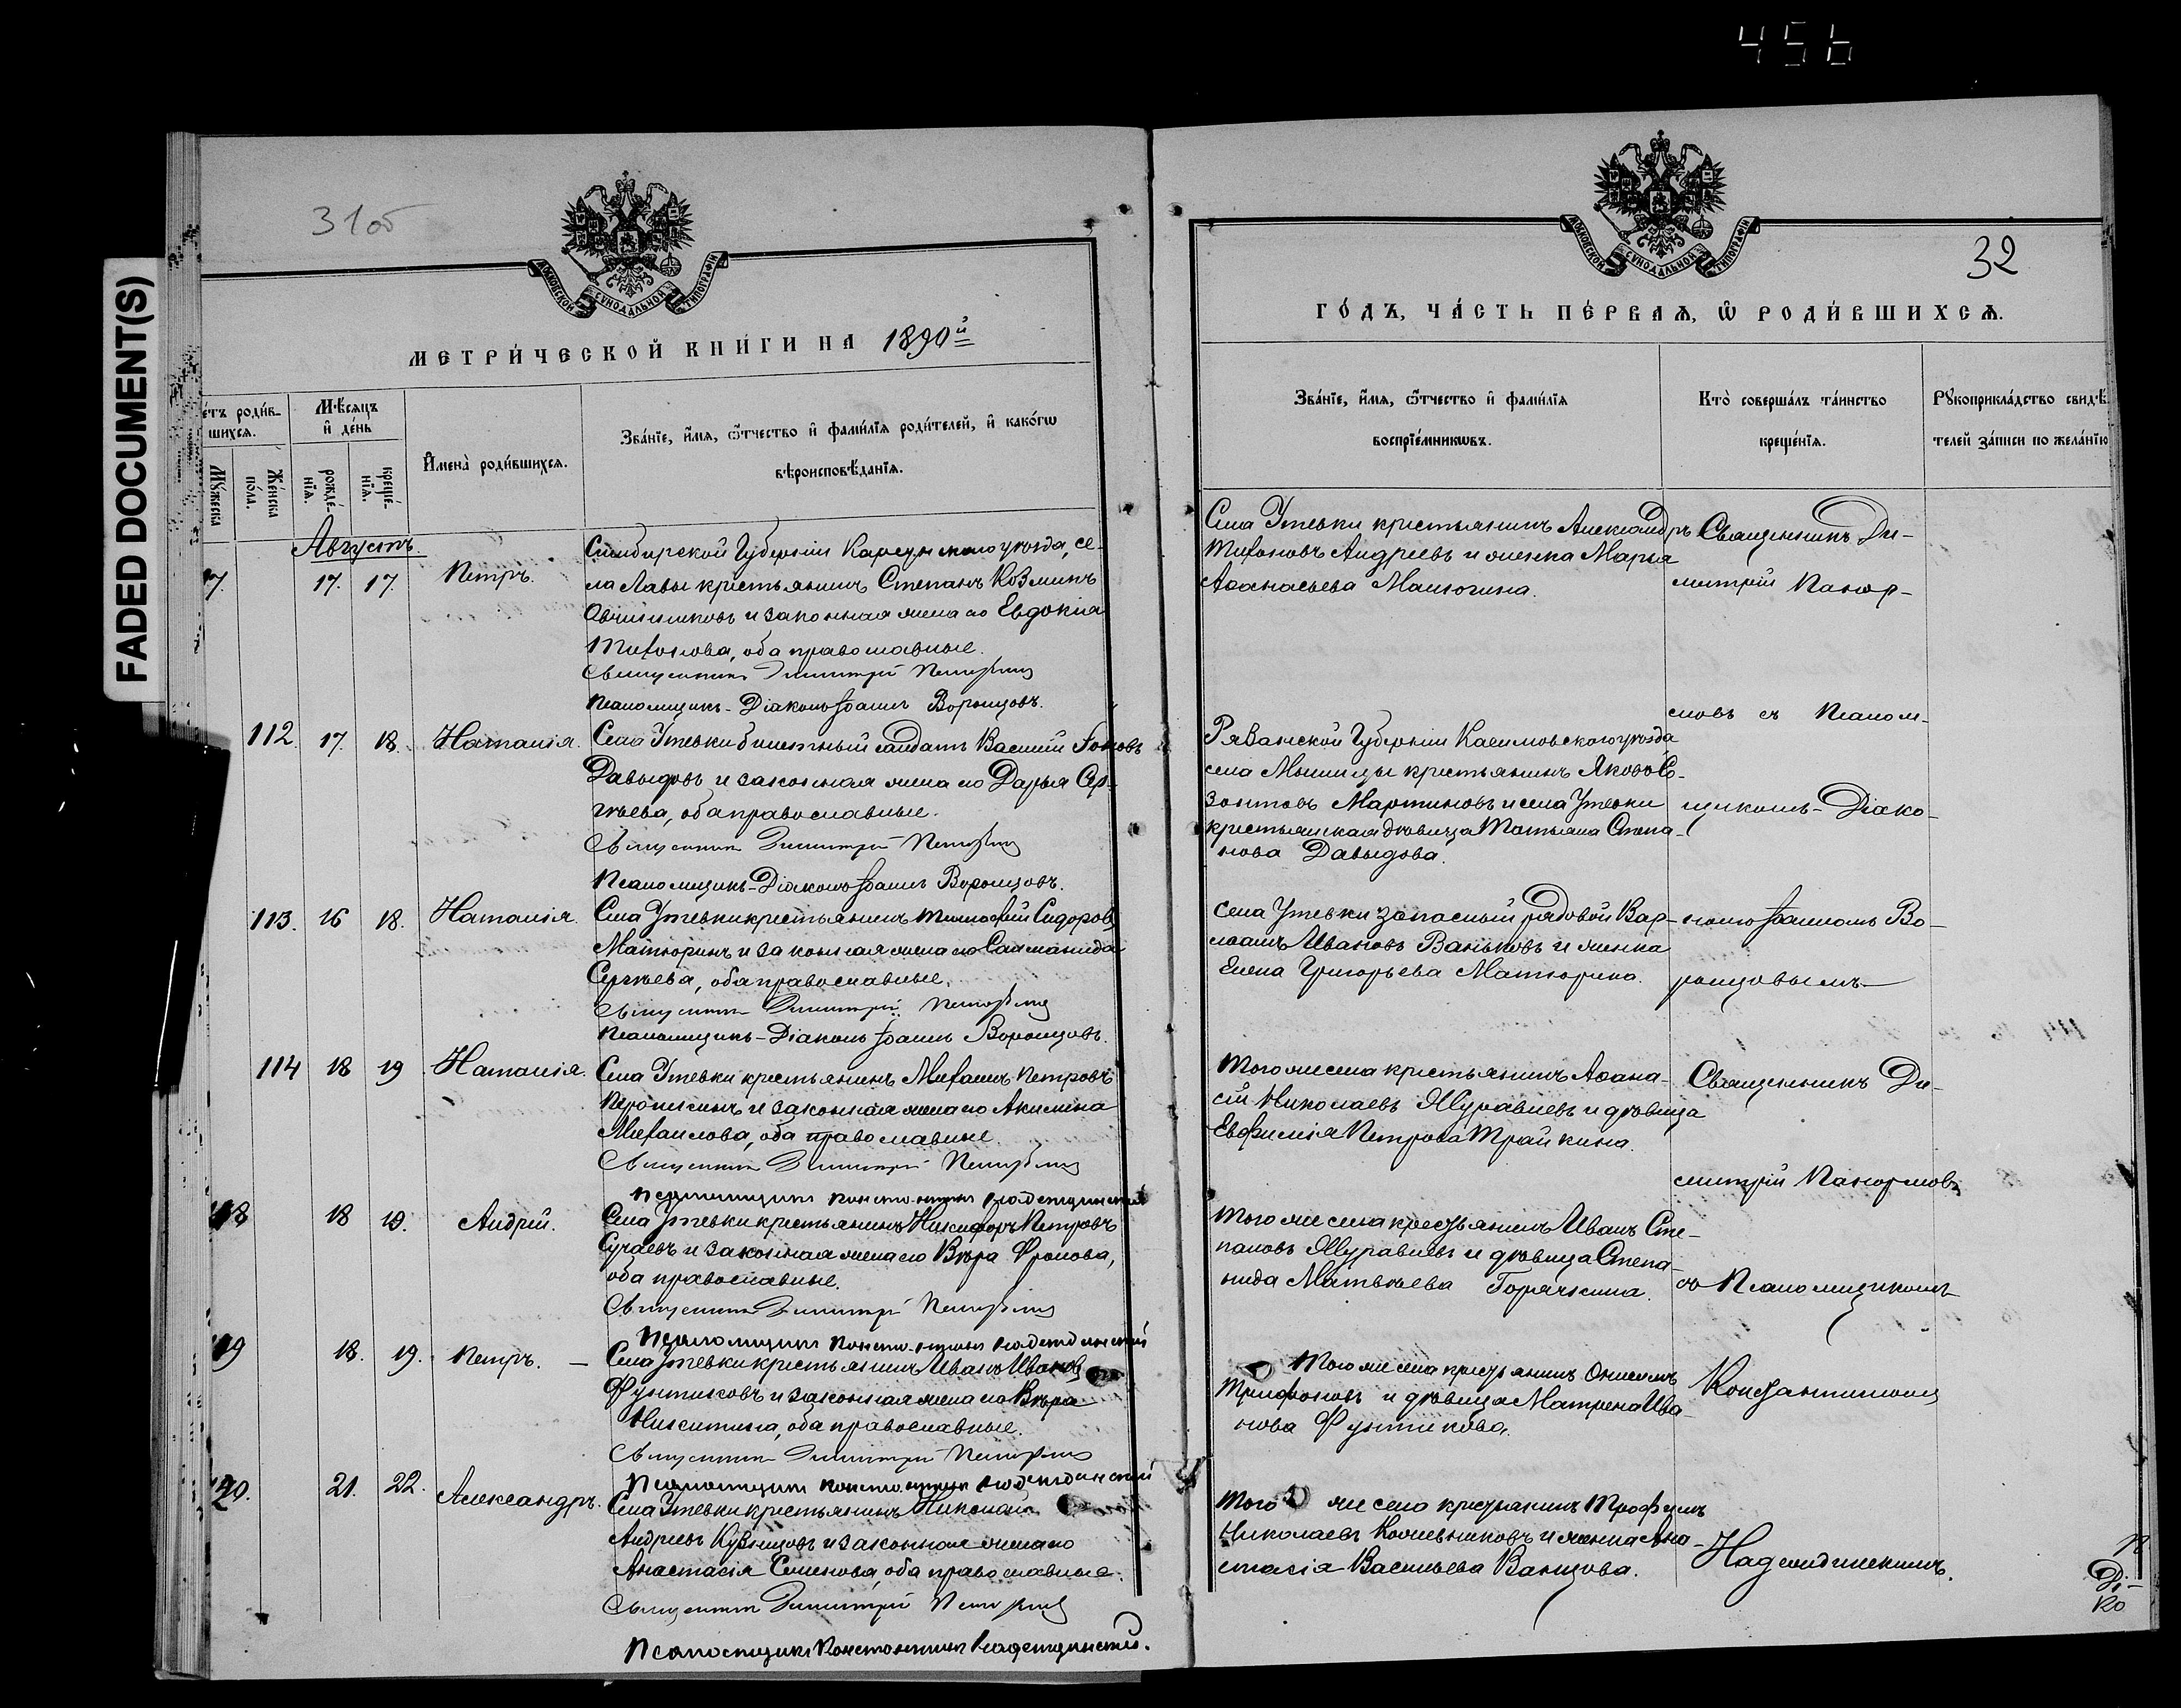 456
FADED DOCUMENT(S)
31об
МОСКОВСКОЙ СѴНОДАЛЬНОЙ ТИПОГРАФІИ
МЕТРИ́ЧЕСКОЙ КНИ́ГИ НА 1890й
е́тъ роди́в-
шихся.
Мѣ́сяцъ
и҆ де́нь
Му́жеска
Же́нска
по́ла.
рожде́-
нїя.
креще́-
нїя.
И҆мена̀ роди́вшихся.
Зва́нїе, и҆́мя, ѻ҆́тчество и҆ фами́лїя роди́телей, и҆ како́гѡ
вѣроисповѣ́данїя.
Августъ
7. 17. 17. Петръ.
Симбирской Губерніи Карсунскаго уѣзда, се-
ла Лавы крестьянинъ Степанъ Козминъ
Овчинниковъ и законная жена его Евдокія
Тихонова, оба православные.
Священникъ Димитрій Панормовъ
Псаломщикъ-Діаконъ Іоаннъ Воронцовъ.
112. 17. 18. Наталія.
Села Утевки билетный солдатъ Василій Іоновъ
Давыдовъ и законная жена его Дарья Сер-
гѣева, оба православные.
Священникъ Димитрій Панормовъ
Псаломщикъ-Діаконъ Іоаннъ Воронцовъ.
113. 16 18. Наталія.
Села Утевки крестьянинъ Тимофей Сидоровъ
Матюринъ и законная жена его Саломанида
Сергѣева, оба православные.
Священникъ Димитрій Панормовъ
Псаломщикъ-Діаконъ Іоаннъ Воронцовъ.
114 18 19 Наталія.
Села Утевки крестьянинъ Михаилъ Петровъ
и законная жена его Акилина
Михаилова, оба православные.
Священникъ Димитрій Панормовъ
Псаломщикъ Константинъ Надеждинскій
18 18 19. Андрій.
Села Утевки крестьянинъ Никифоръ Петровъ
Сучаевъ и законная жена его Вѣра Фролова,
оба православные.
Священникъ Димитрій Панормовъ
Псаломщикъ Константинъ Надеждинскій
19 18. 19. Петръ. —
Села Утевки крестьянинъ Иванъ Ивановъ
Фунтиковъ и законная жена его Вѣра
Никитина, оба православные.
Священникъ Димитрій Панормовъ
Псаломщикъ Константинъ Надеждинскій
120. 21. 22. Александръ.
Села Утевки крестьянинъ Николай
Андреевъ Кузнецовъ и законная жена его
Анастасія Семенова, оба православные.
Священникъ Димитрій Панормовъ
Псаломщикъ Константинъ Надеждинскій.
МОСКОВСКОЙ СѴНОДАЛЬНОЙ ТИПОГРАФІИ
32
ГО́ДЪ, ЧА́СТЬ ПЕ́РВАЯ, Ѡ҆ РОДИ́ВШИХСЯ.
Зва́нїе, и҆́мя, ѻ҆́тчество и҆ фами́лїя
воспрїе́мникѡвъ.
Кто̀ соверша́лъ та́инство
креще́нїя.
Рꙋкоприкла́дство свидѣ́-
телей за́писи по жела́нїю
Села Утевки крестьянинъ Александръ
Тихоновъ Андреевъ и женка Марья
Аѳанасьева Малюгина.
Священникъ Ди-
митрій Панор-
мовъ съ Псалом-
Рязанской Губерніи Касимовскаго уѣзда
села крестьянинъ Яковъ Со-
зонтовъ Мартиновъ и села Утевки
крестьянская дѣвица Татьяна Степа-
нова Давыдова.
щикомъ-Діако-
Села Утевки запасный рядовой Вар-
лаамъ Ивановъ Ваньковъ и женка
Елена Григорьева Матюрина.
номъ Іоанномъ Во-
ронцовымъ
Того же села крестьянинъ Аѳана-
сій Николаевъ Журавлевъ и дѣвица
Евфимія Петрова Трайкина.
Священникъ Ди-
митрій Панормовъ
Того же села крестьянинъ Иванъ Сте-
пановъ Журавлевъ и дѣвица Степа-
нида Матвѣева Горячкина.
съ Псаломщикомъ
Того же села крестьянинъ Онисимъ
Трифоновъ и дѣвица Матрена Ива-
нова Фунтикова.
Константиномъ
Того же села крестьянинъ Трофимъ
Николаевъ Кожевниковъ и женка Ана-
стасія Васильева Ванцова.
Надеждинскимъ.
Ді-
ко